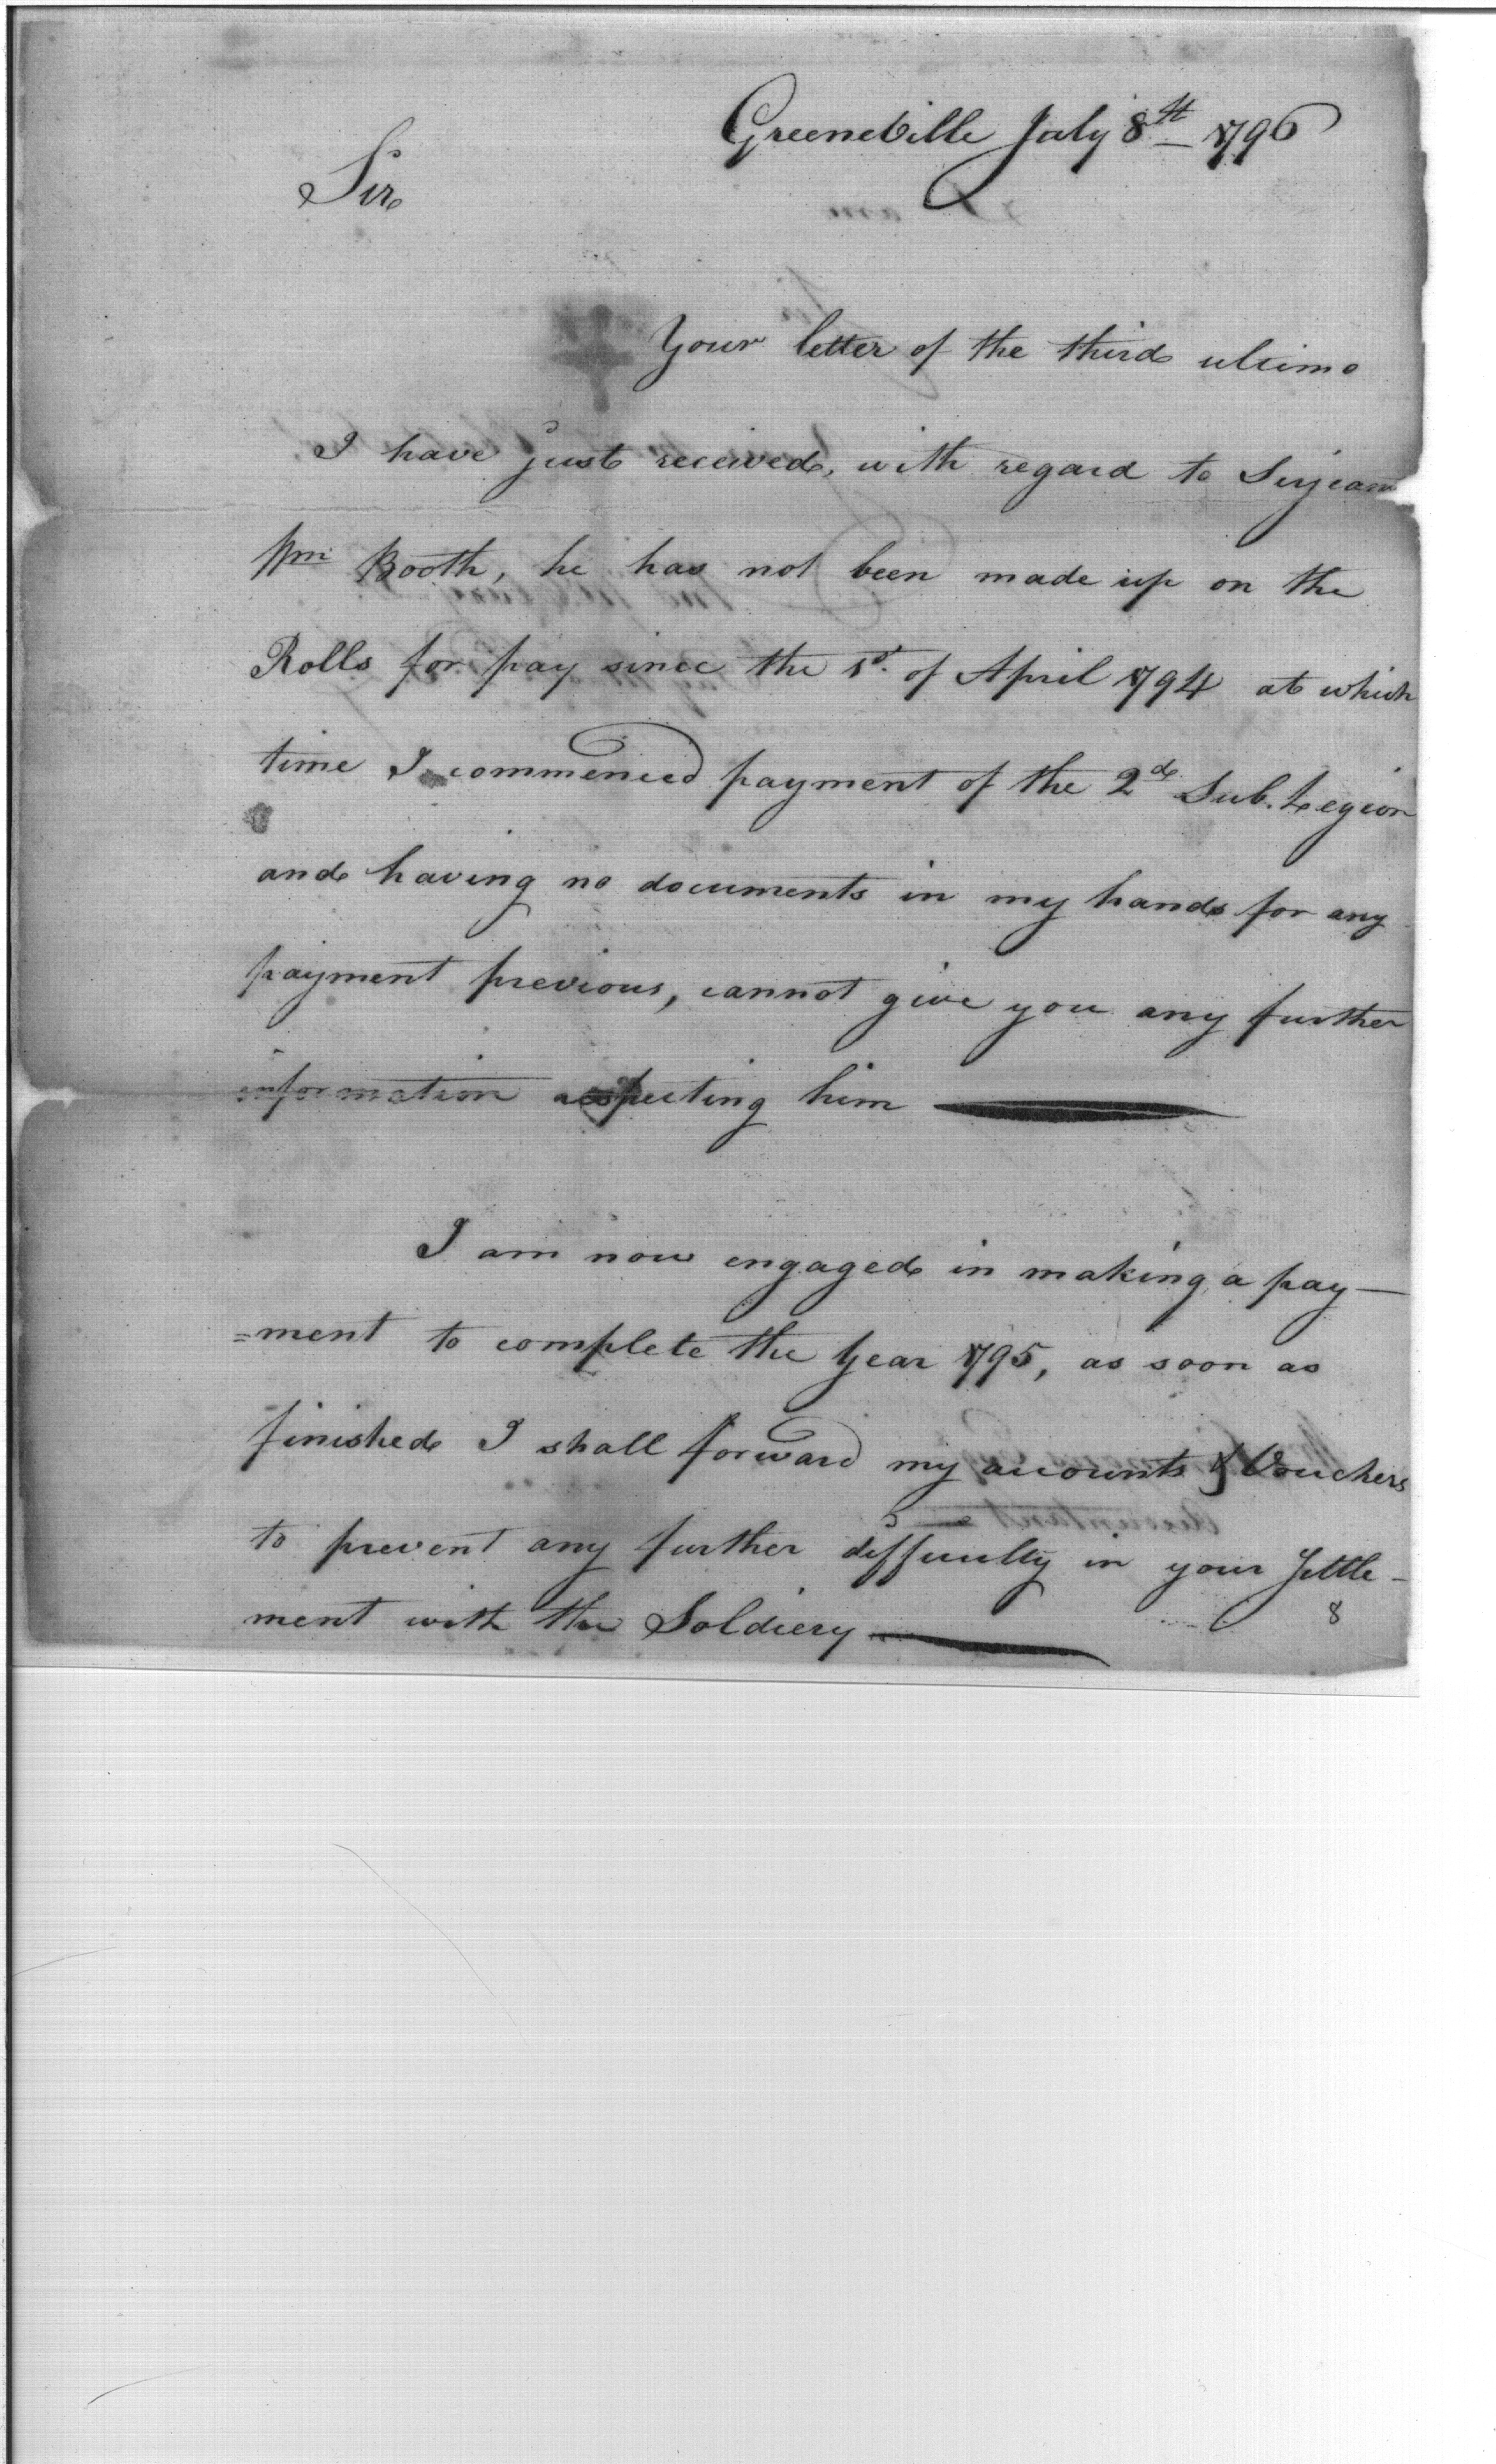 Greeneville July 8th 1796
Sir
Your letter of the third ultimo
I have just received, with regard to Serjeant
Wm Booth, he has not been made up on the
Rolls for pay since the 1st. of April 1794 at which
time I commenced payment of the 2d Sub. Legion
and having no documents in my hands for any
payment previous, cannot give you any further
information respecting him
I am now engaged in making a pay-
=ment to complete the Year 1795, as soon as
finished I shall forward my accounts & Vouchers
to prevent any further difficulty in your Settle-
ment with the Soldiery
8